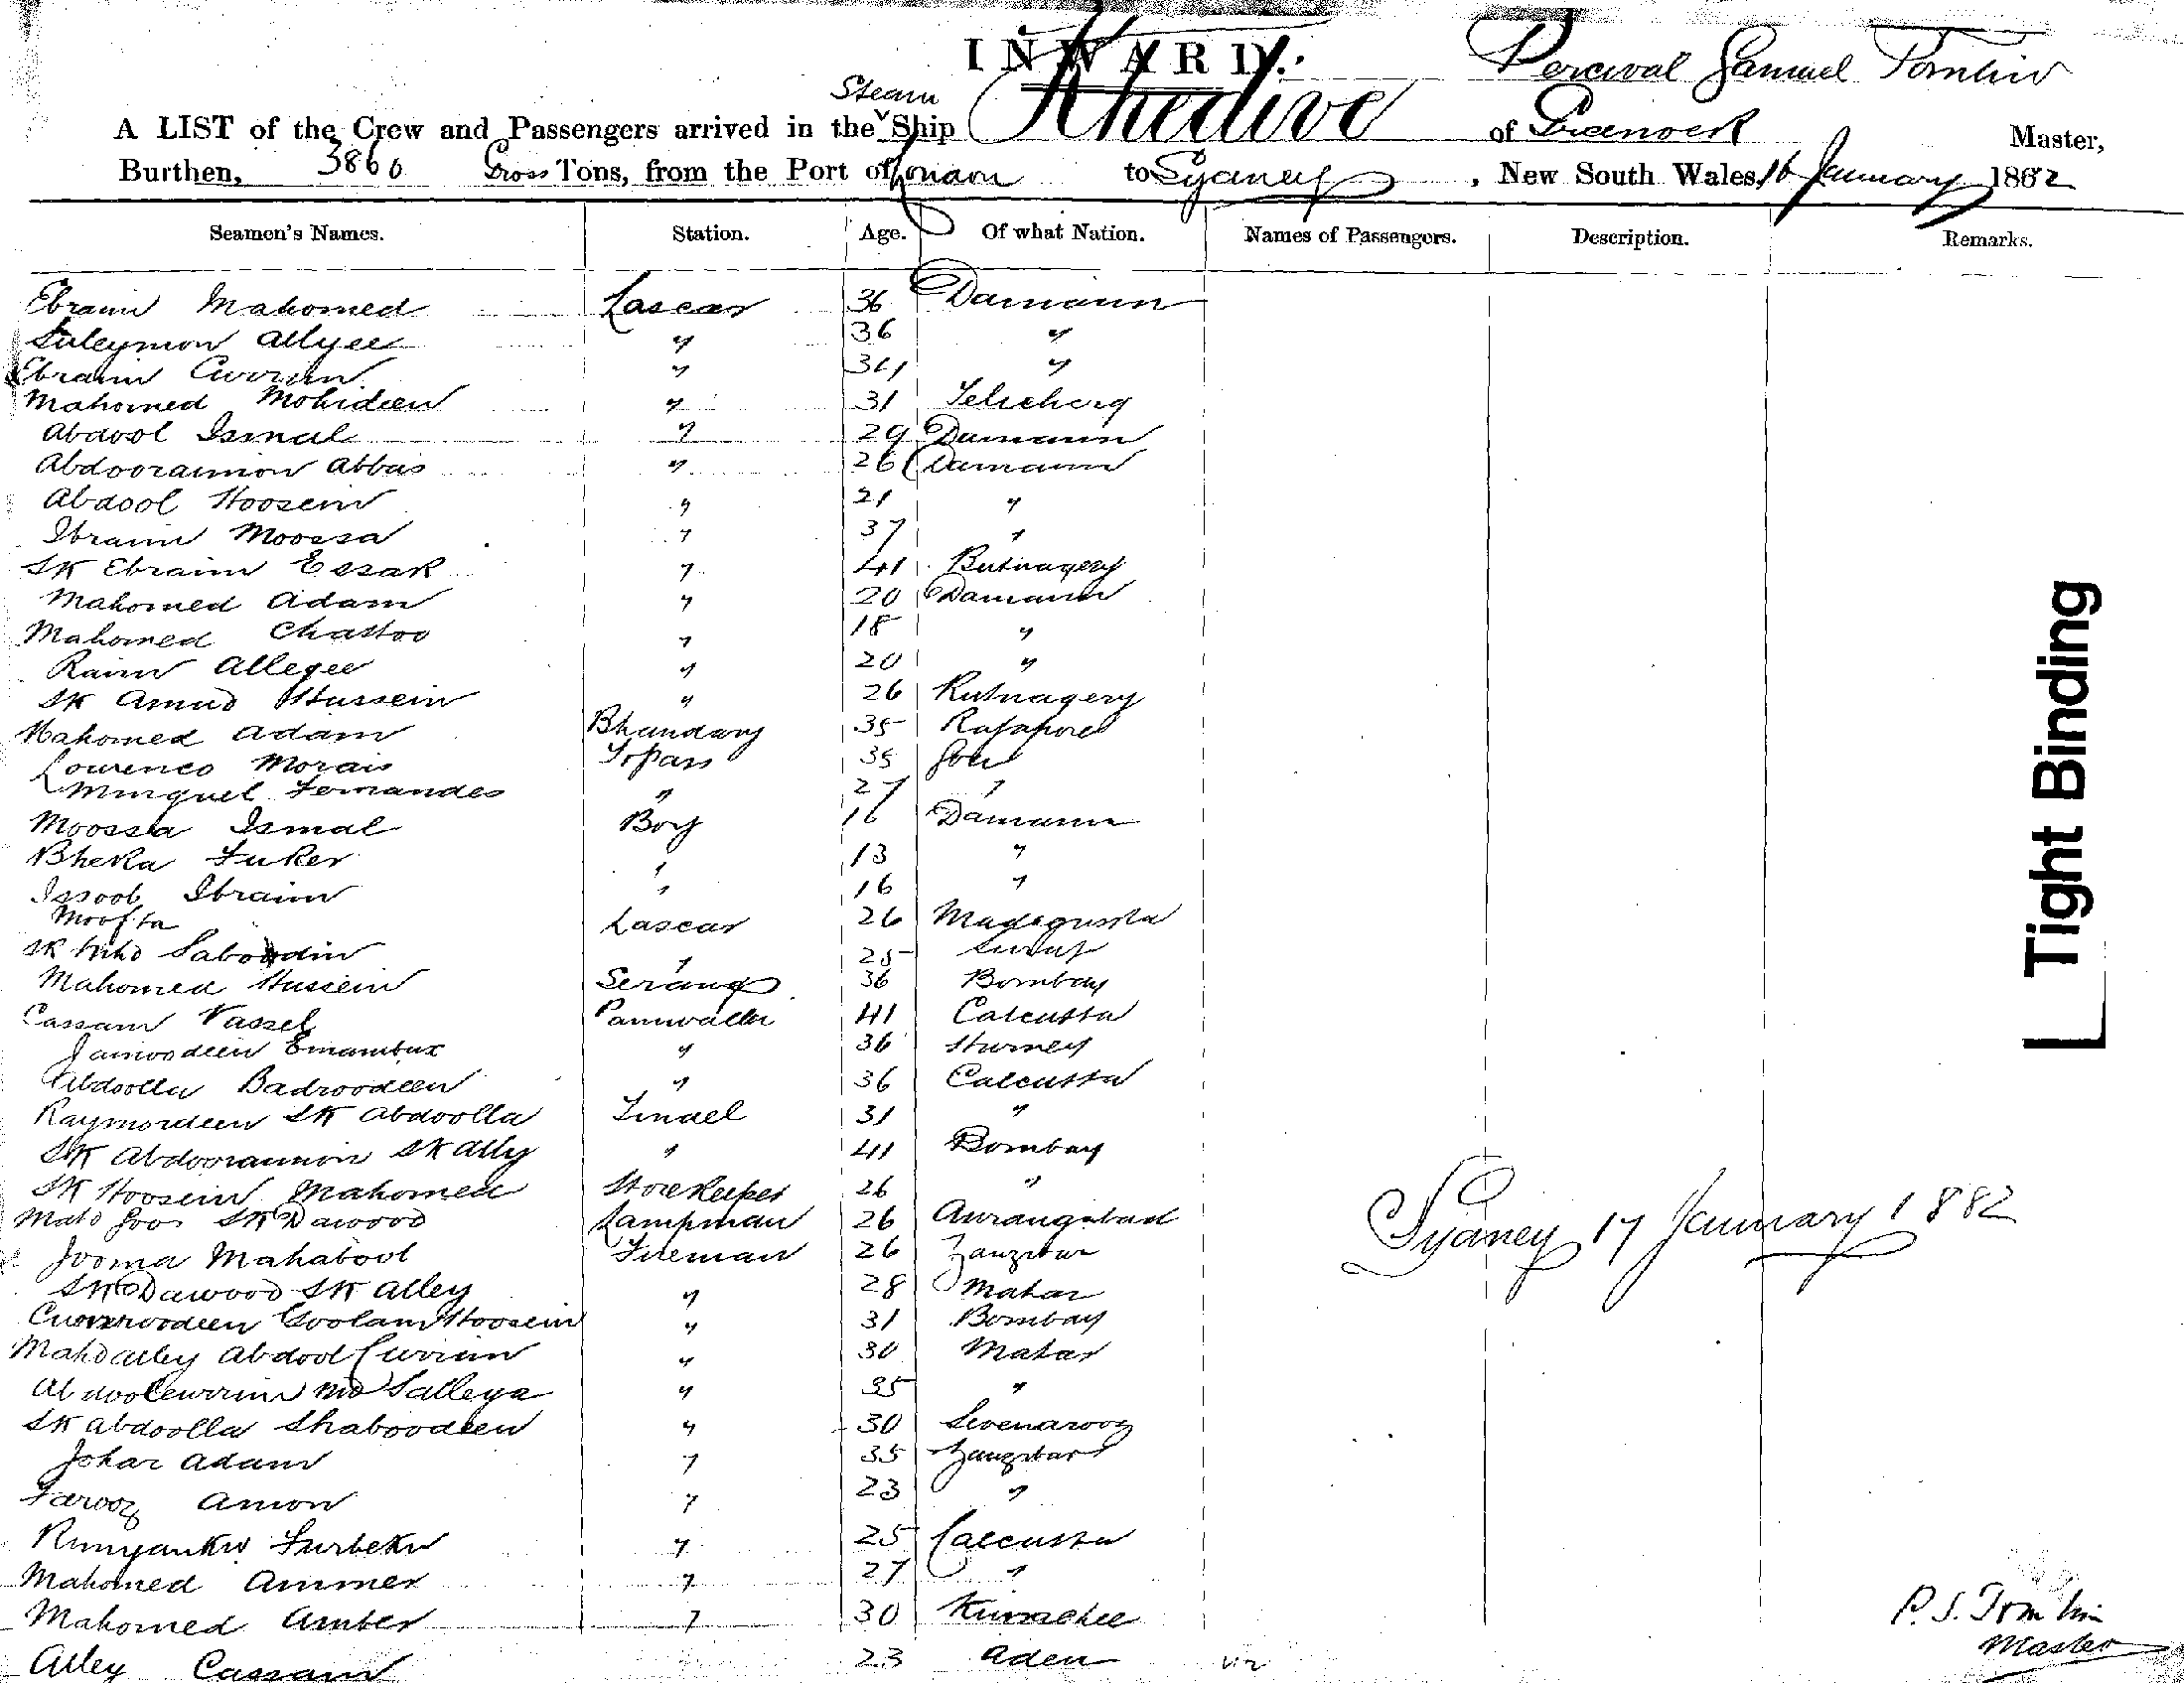 INWARD.
Percival Samuel Tomlin
A LIST of the Crew and Passengers arrived in the Steam Ship Khedive of Greenock Master,
Burthen, 3860 Gross Tons, from the Port of to Sydney, New South Wales, 16 January 1882
Seamen's Names. Station. Age. Of what Nation. Names of Passengers. Description. Remarks.
Ebraim Mahomed Lascar 36 Damaun
Suleymon Allyee " 36 "
Ebraim Currim " 34 "
Mahomed Mohideen " 31
Abdool Ismal " 29 Damaun
Abdooraimon Abbas " 26 Damaun
Abdool Hoosein " 21 "
Ibraim Moossa " 37 "
SK Ebraim Essak " 41 Rutnagery
Mahomed Adam " 20 Damaun
Mahomed Chattoo " 18 "
Raim Allegee " 20 "
SK Amud Hussein " 26 Rutnagery
Mahomed Adam Bhandary 35 Rajapore
Lourenco Morais Topass 35 Goa
Minguel Fernandes " 27 "
Moossa Ismal Boy 16 Damaun
Bheka Fuker " 13 "
Issoob Ibraim " 16 "
Moofta Lascar 26
SK Saboodin " 25 Surat
Mahomed Hussein Serang 36 Bombay
Cassam Vassel Paniwalla 41 Calcutta
Jamoodeen Emambux " 36
Abdoolla Badroodeen " 36 Calcutta
Raymordeen SK Abdoolla Tindel 31 "
SK Abdooraimon SK Ally " 41 Bombay
SK Hoosein Mahomed Storekeeper 26 "
SK Dawood Lampman 26 Aurangabad
Jooma Mahabool Fireman 26 Zanzibar
SK Dawood SK Alley " 28 Mahar
Goolam Hoosein " 31 Bombay
Mahd Alley Abdool Currim " 30 Mahar
Abdoolcurrim Md Salleya " 35 "
SK Abdoolla Shaboodeen " 30
Sydney 17 January 1882
Johar Adam " 35 Zanzibar
Farooz Amon " 23 "
" 25 Calcutta
Mahomed Ammer " 27 "
Mahomed Amber " 30 Kurrachee
Alley Cassam 23 Aden
P. S. Tomlin
Master
Tight Binding